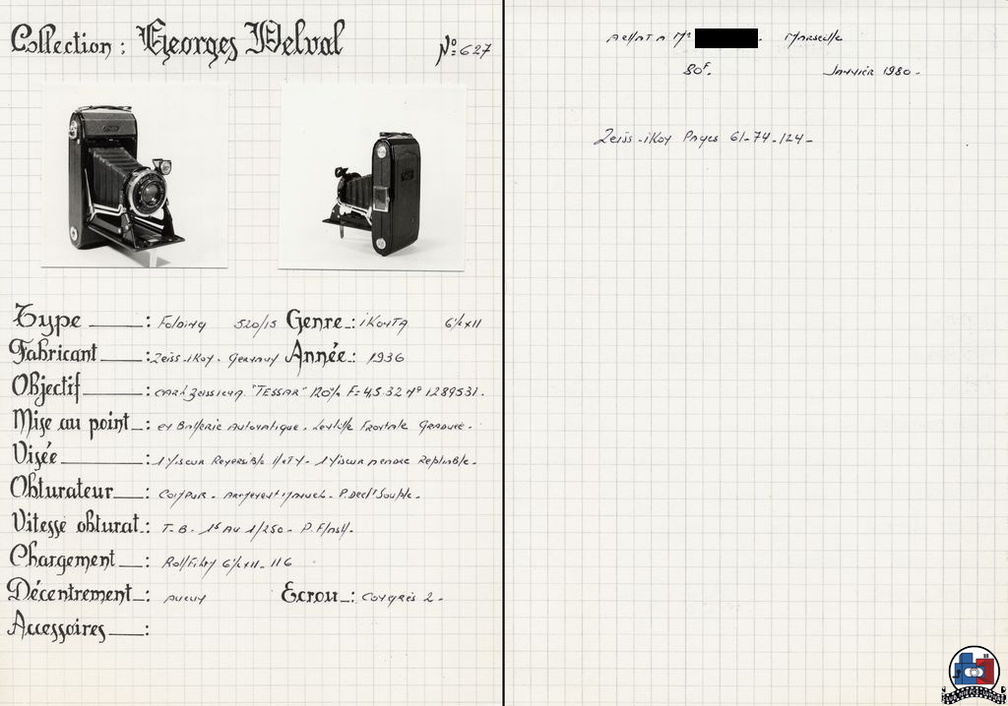 Collection : Georges Delval N°: 627
Type : Folding 520/15 Genre : iKonTA 6½x11
Fabricant : Zeiss-iKon. Germany Année : 1936
Objectif : CARL Zeiss iena. "TESSAR" 120% F= 4,5.32 N° 1289531.
Mise au point : en Batterie Automatique. Lentille Frontale Graduée.
Visée : 1 Viseur Reversible H et V - 1 Viseur Repliable.
Obturateur : Compur - Armement Manuel. P. Decl' Souple.
Vitesse obturat. : T. B. 1s Au 1/250 - P. Flash.
Chargement : RollFilm 6½x11 - 116
Décentrement : Aucun Ecrou : Congrès 2 -
Accessoires :
Mr . Marseille
80F. Janvier 1980 -
Zeiss-iKon Pages 61-74-124-